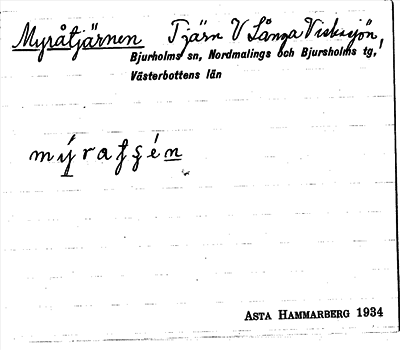 Myråtjärnen Tjärn V Långa Visksjön,
Bjurholms sn, Nordmalings och Bjursholms tg,
Västerbottens län
ASTA HAMMARBERG 1934